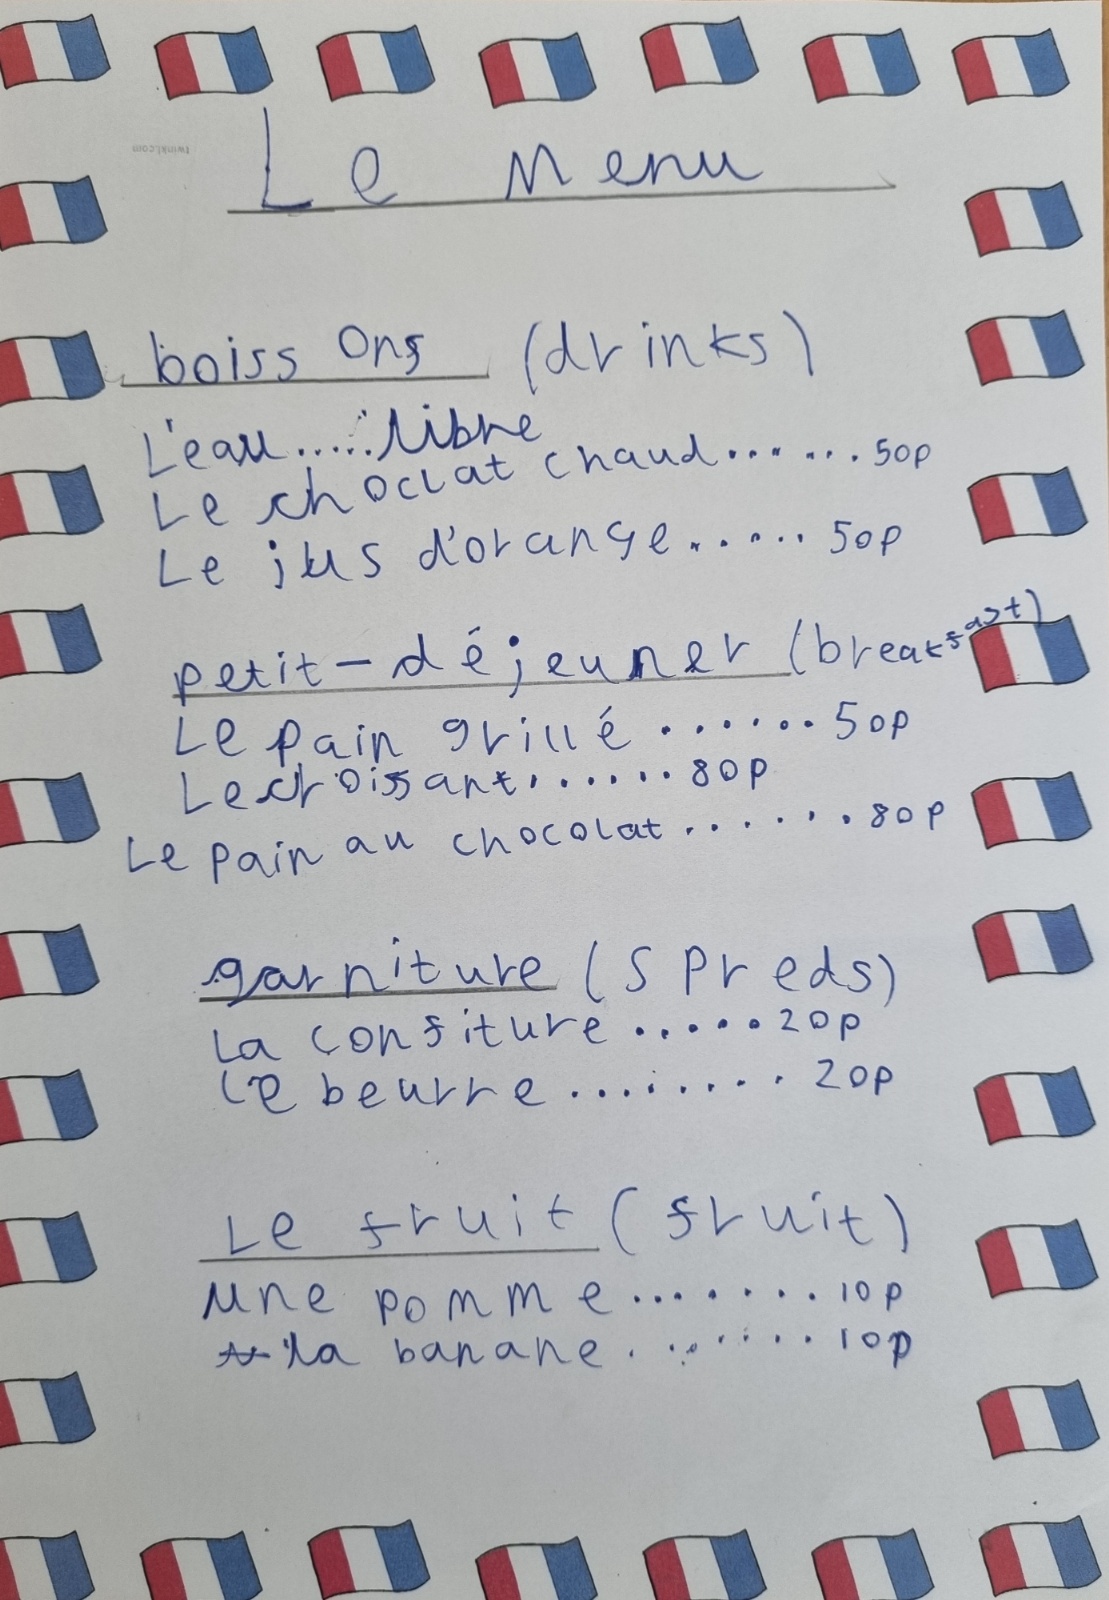 twinkl.com
Le Menu
boissons (drinks)
L'eau..... libre
Le choclat chaud....... 50p
Le jus d'orange...... 50p
petit-déjeuner (breakfast)
Le pain grillé ....... 50p
Le croissant....... 80p
Le pain au chocolat ....... 80p
garniture (spreds)
La confiture ..... 20p
Le beurre ........ 20p
Le fruit (fruit)
une pomme ....... 10p
la banane ....... 10p